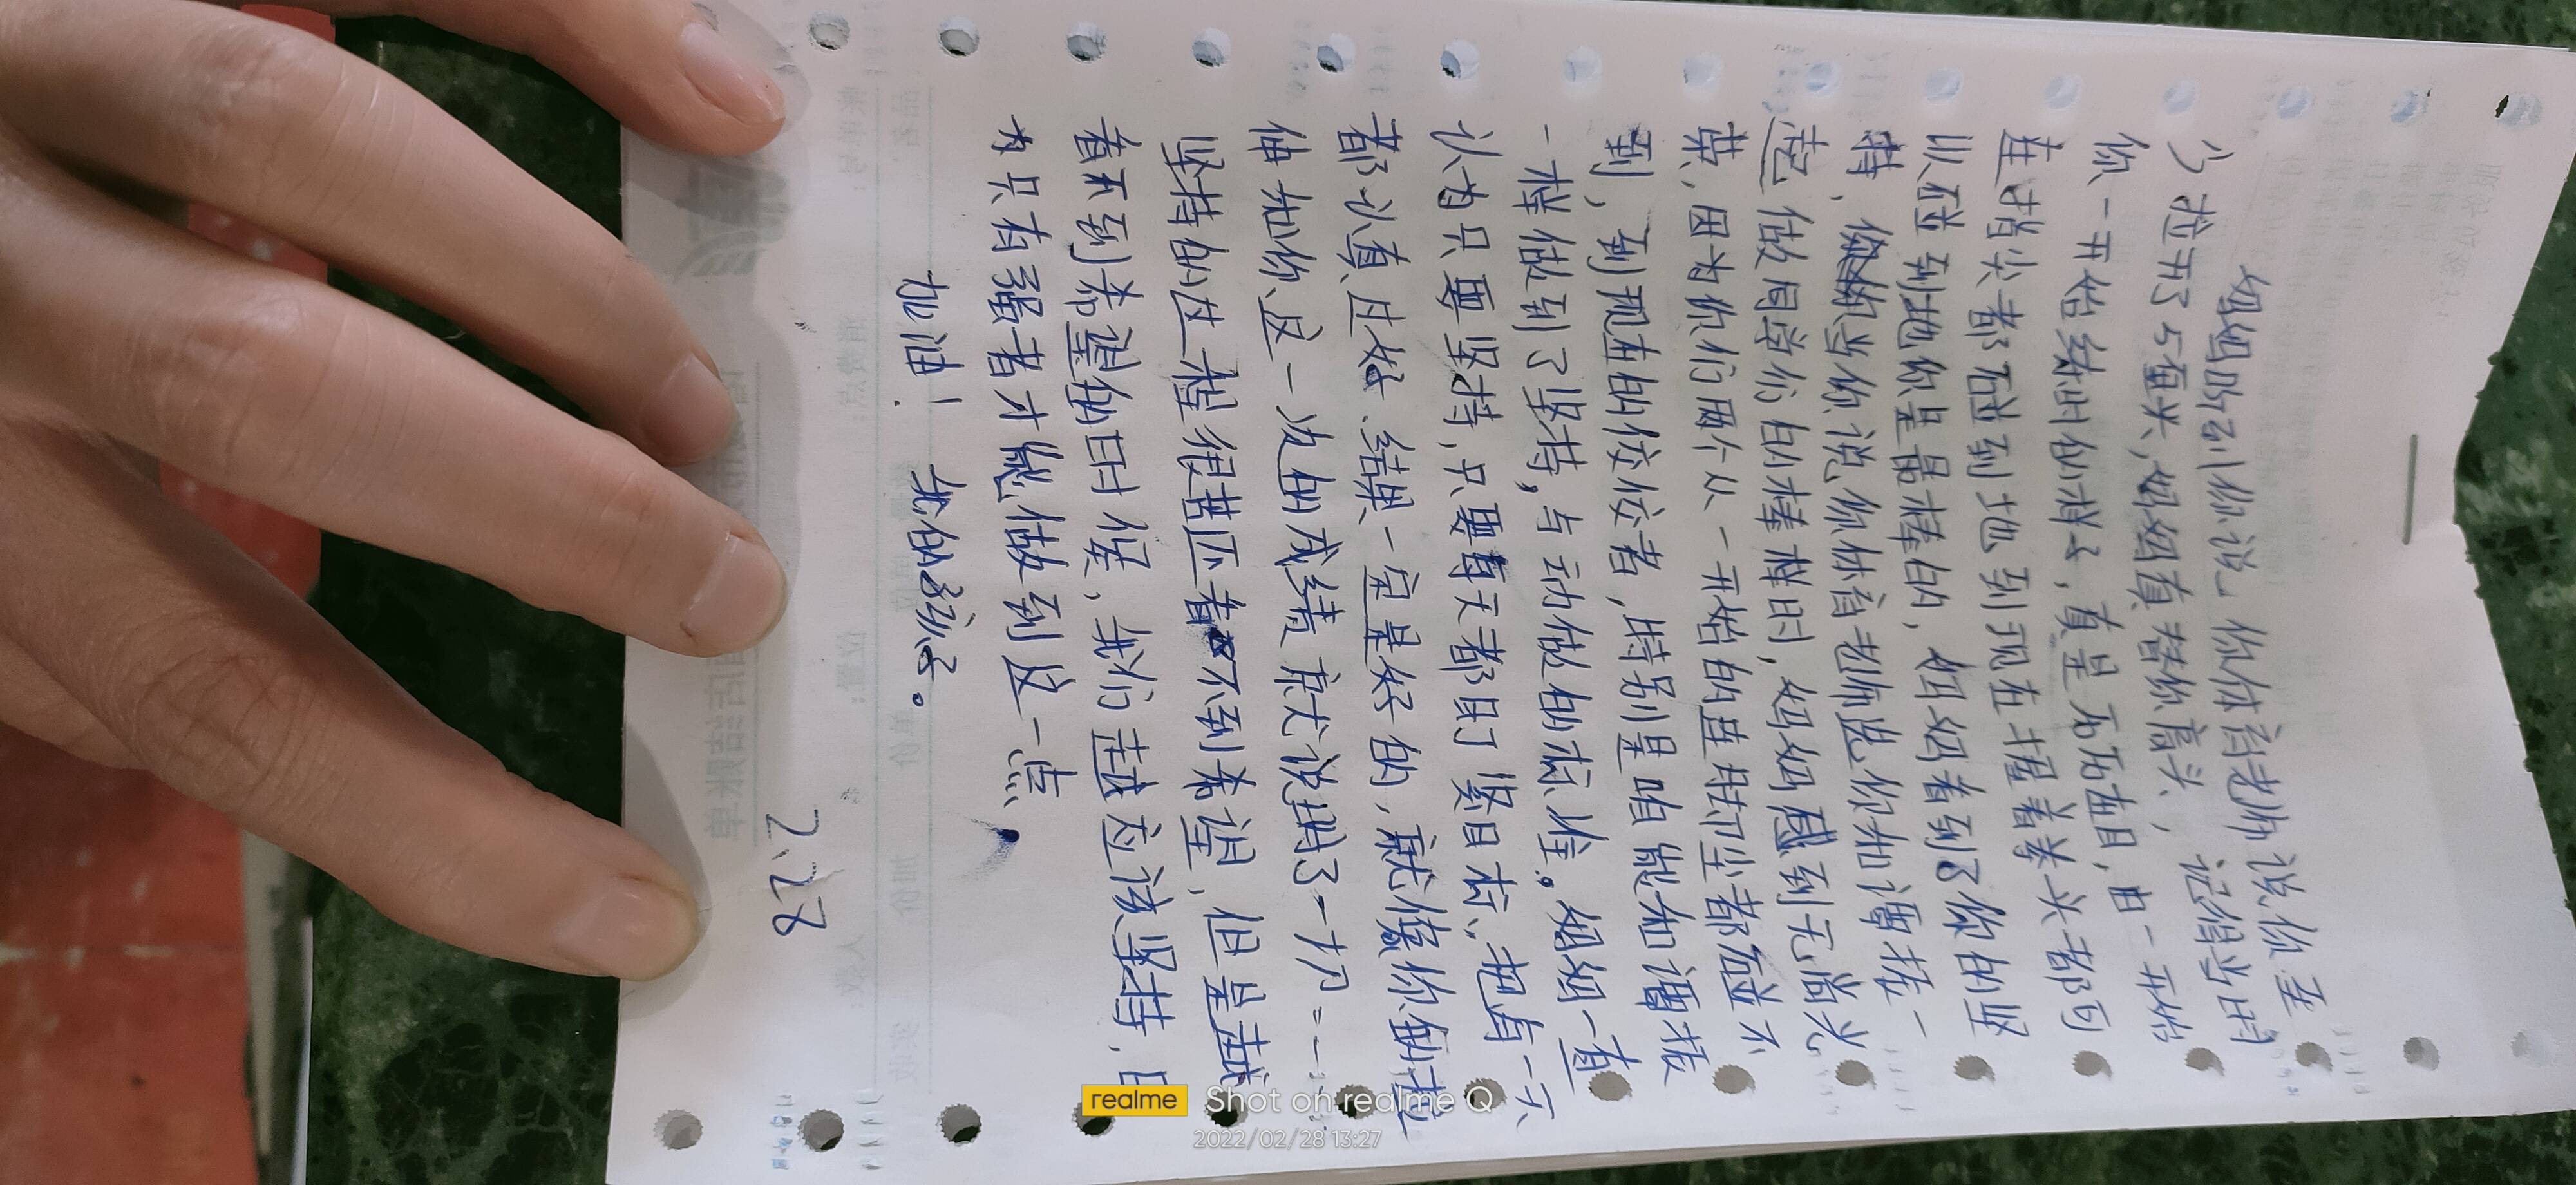 妈妈听到你说，你体育老师说你至
少拉开了5厘米，妈妈真替你高兴，记得当时
你一开始练时的样子，真是历历在目，由一开始
连指尖都碰到地到现在握着拳头都可
以碰到地你是最棒的，妈妈看到了你的坚
持，当你说你体育老师说你和谭技一
起做同学们的榜样时，妈妈感到无尚光
荣，因为你们两个从一开始的连肚子尘都碰不
到，到现在的佼佼者，特别是咱能和谭技
一样做到了坚持，与动做的标准。妈妈一直
认为只要坚持，只要每天都盯紧目标，把每一天
都认真过好，结果一定是好的，就像你每拉
伸地你这一次的成绩就说明了一切=-
坚持的过程很苦还看不到希望，但是越
看不到希望的时候，我们越应该坚持，因
为只有强者才能做到这一点
加油！我的孩子。
2.28
realme Shot on realme Q
2022/02/28 13:27